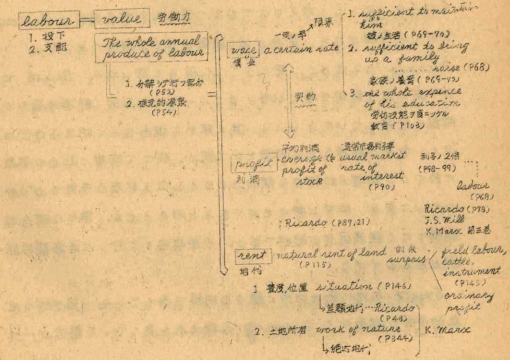 labour = value 労働力
1. 投下
2. 支配
The whole annual produce of labour
(P52)
2. 根元的源泉
(P54)
wage a certain rate
賃金
1. sufficient to maintain him
(P69-70)
2. sufficient to bring up a family
raise (P68)
家族ノ養育 (P69-70)
3. the whole expence of his education
教育 (P103)
契約
平均利潤
profit average profit of stock
利潤
usual market rate of interest
(P90)
利子ノ2倍
(P98-99)
labour
Ricardo
J.S. Mill
K. Marx 第三巻
Ricardo (P89,21)
rent natural rent of land
地代
(P115)
surpass
field labour, cattle, instrument
(P145)
ordinary profit
1. 豊度、位置 situation (P146)
差額地代 … Ricardo
(P44)
2. 土地所有 work of nature
(P344)
K. Marx
絶対地代